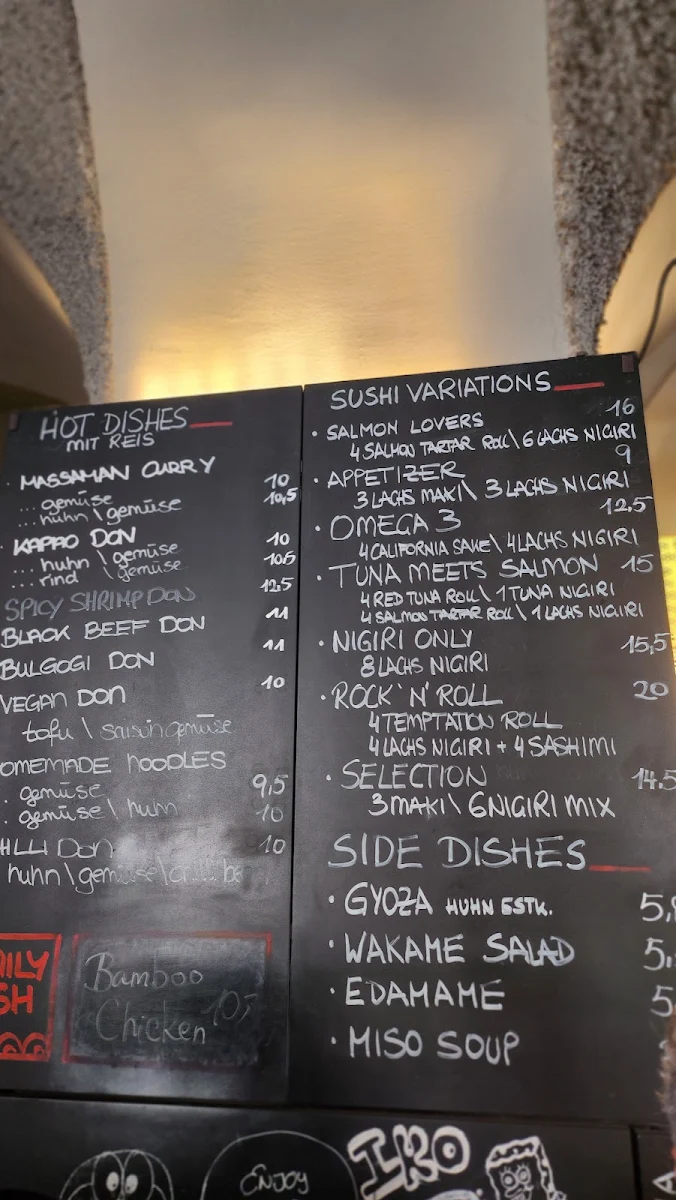 HOT DISHES
MIT REIS
MASSAMAN CURRY
...gemüse 10
...huhn \ gemüse 10,5
KAPPO DON
...huhn \ gemüse 10
...rind \ gemüse 10,5
SPICY SHRIMP DON 12,5
BLACK BEEF DON 11
BULGOGI DON 11
VEGAN DON 10
tofu \ saisongemüse
OMEMADE NOODLES
. gemüse 9,5
. gemüse \ huhn 10
DON 10
huhn \ gemüse \
Bamboo
Chicken 10,5
SUSHI VARIATIONS
· SALMON LOVERS 16
4 SALMON TARTAR ROLL \ 6 LACHS NIGIRI
· APPETIZER 9
3 LACHS MAKI \ 3 LACHS NIGIRI
· OMEGA 3 12,5
4 CALIFORNIA SAKE \ 4 LACHS NIGIRI
· TUNA MEETS SALMON 15
4 RED TUNA ROLL \ 1 TUNA NIGIRI
4 SALMON TARTAR ROLL \ 1 LACHS NIGIRI
· NIGIRI ONLY 15,5
8 LACHS NIGIRI
· ROCK'N'ROLL 20
4 TEMPTATION ROLL
4 LACHS NIGIRI + 4 SASHIMI
· SELECTION 14.5
3 MAKI \ 6 NIGIRI MIX
SIDE DISHES
· GYOZA HUHN 6STK. 5,
· WAKAME SALAD 5,
· EDAMAME 5
· MISO SOUP
ENJOY
IKO